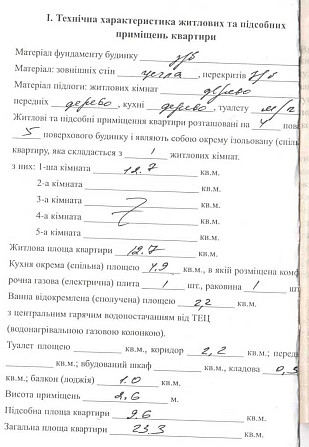 І. Технічна характеристика житлових та підсобних
приміщень квартири
Матеріал фундаменту будинку з/б
Матеріал: зовнішніх стін цегла, перекриттів з/б
Матеріал підлоги: житлових кімнат дерево
передніх дерево, кухні дерево, туалету м/п
Житлові та підсобні приміщення квартири розташовані на 4 пов
5 поверхового будинку і являють собою окрему ізольовану (спіль
квартиру, яка складається з 1 житлових кімнат.
з них: 1-ша кімната 12.7 кв.м.
2-а кімната кв.м.
3-а кімната кв.м.
4-а кімната кв.м.
5-а кімната кв.м.
Житлова площа квартири 12.7 кв.м.
Кухня окрема (спільна) площею 4.9 кв.м., в якій розміщена комф
рочна газова (електрична) плита 1 шт., раковина 1 шт
Ванна відокремлена (сполучена) площею 2,2 кв.м.
з центральним гарячим водопостачанням від ТЕЦ
(водонагрівальною газовою колонкою).
Туалет площею кв.м., коридор 2,2 кв.м.; перед
кв.м.; вбудований шкаф кв.м., кладова 0,3
кв.м.; балкон (лоджія) 1.0 кв.м.
Висота приміщень 2.6 м.
Підсобна площа квартири 9.6 кв.м.
Загальна площа квартири 23.3 кв.м.